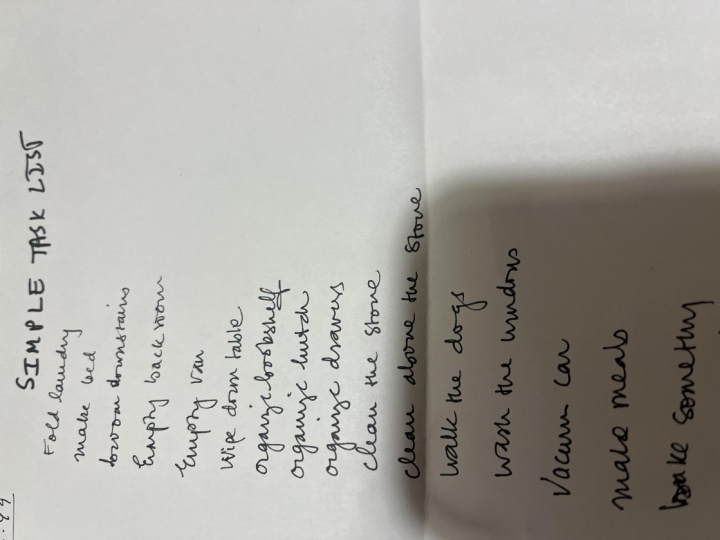 SIMPLE TASK LIST
Fold laundry
make bed
broom downstairs
Empty back room
Empty van
Wipe down table
organize bookshelf
organize hutch
organize drawers
clean the stove
clean above the stove
walk the dogs
wash the windows
Vacuum car
make meals
bake something